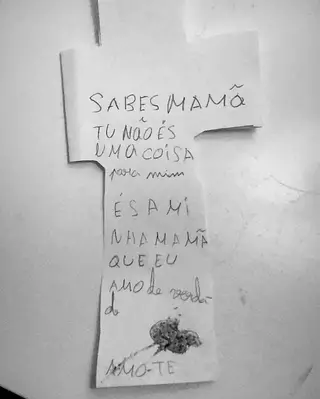 SABES MAMÃ
TU NÃO ÉS
UMA COISA
para mim
ÉS A MI
NHA MAMÃ
QUE EU
AMO de verda
de
AMO-TE